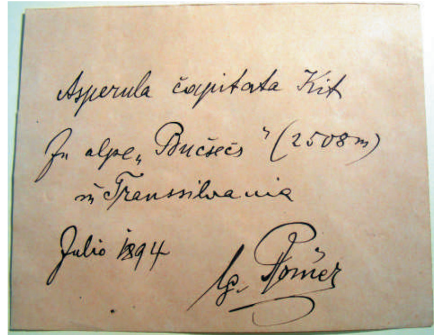 Asperula čapitata Kit
In alpe „Bučsečs" (2508 m)
in Transsilvania
Julio 1894
lg. Römer